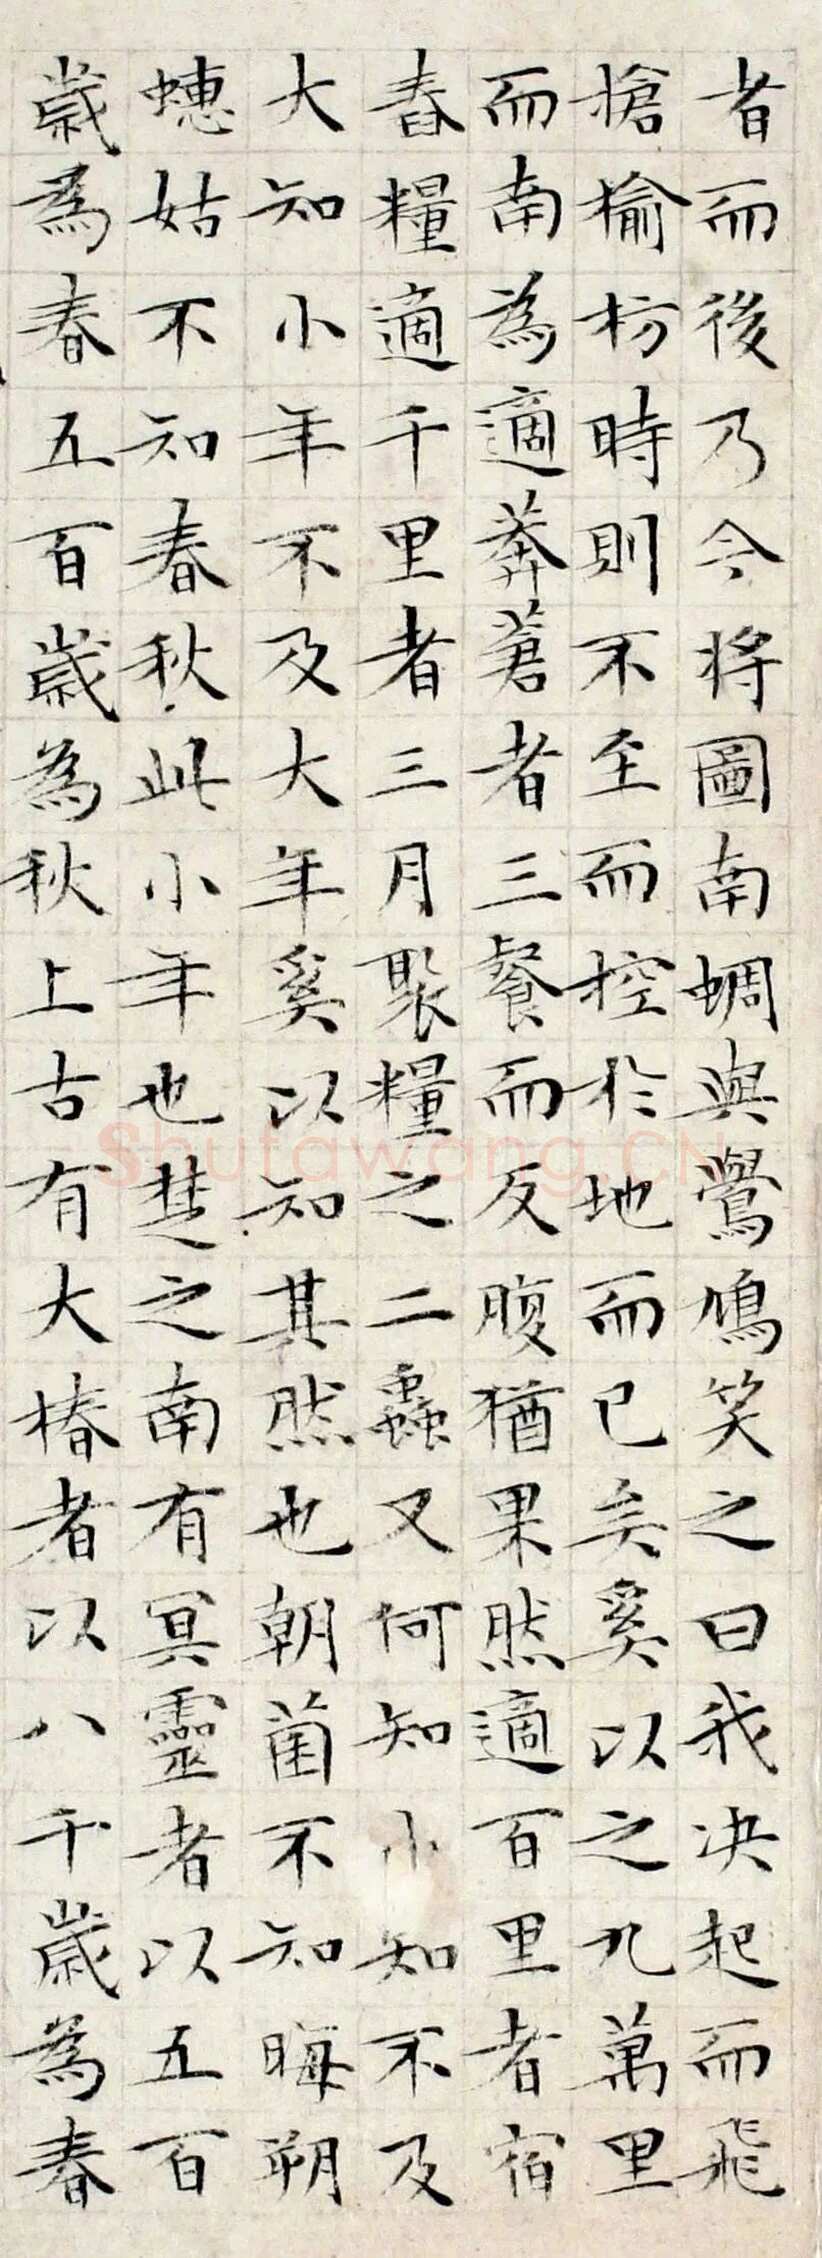 者而後乃今將圖南蜩與鷽鳩笑之曰我决起而飛
搶榆枋時則不至而控於地而已矣奚以之九萬里
而南為適莽蒼者三餐而反腹猶果然適百里者宿
舂糧適千里者三月聚糧之二蟲又何知小知不及
大知小年不及大年奚以知其然也朝菌不知晦朔
蟪姑不知春秋此小年也楚之南有冥靈者以五百
歲為春五百歲為秋上古有大椿者以八千歲為春
Shufawang.CN